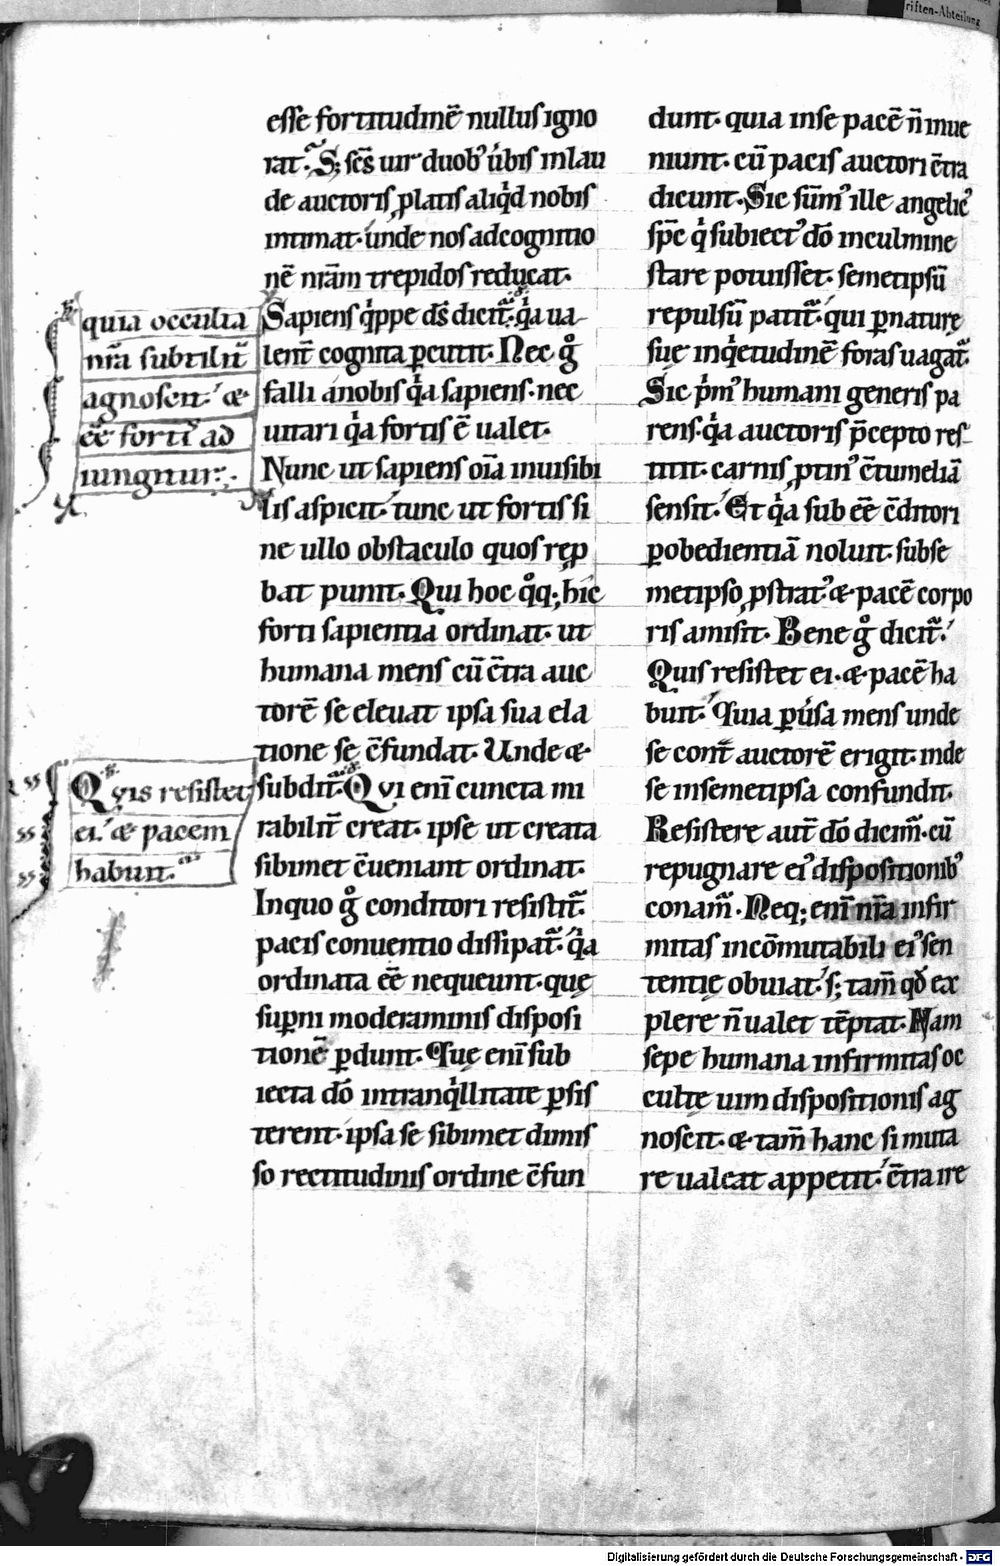 esse fortitudinē nullus igno
rat. S; sc̄s uir duobꝰ úbis in lau
de auctoris ꝓlatis aliqͥd nobis
intimat. únde nos ad cognitio
nē nr̄am trepidos reducat.
Sapiens qͥppe ds̄ dicit̃. qͥa ua
lent̃ cognita ꝑcutit. Nec gͦ
falli a nobis qͥa sapiens. nec
uitari qͥa fortis ē ualet.
Nunc ut sapiens oīa inuisibi
lis aspicit. tunc ut fortis si
ne ullo obstaculo quos rep̱
bat punit. Qui hoc qͦq; hic
forti sapientia ordinat. ut
humana mens cū c̄tra auc
torē se eleuat ipsa sua ela
tione se c̄fundat. Unde &
subdit̃. Qui enī cuncta mi
rabilit̃ creat. ipse ut creata
sibimet c̄ueniant ordinat.
In quo gͦ conditori resistit̃.
pacis conuentio dissipat̃. qͥa
ordinata eē nequeunt. quę
suꝑni moderaminis disposi
tionē ꝑdunt. Quę enī sub
iecta dō intranqͥllitate ꝑsis
terent. ipsa se sibimet dimis
so rectitudinis ordine c̄fun
quia occulta
nr̄a subtilit̃
agnoscit. &
eē fortiꝰ ad
iungitur.
Quis resistet
ei. & pacem
habuit.
dunt. quia in se pacē n̄ inue
niunt. cū pacis auctori c̄tra
dicunt. Sic sūmꝰ ille angelicꝰ
sp̄c qͥ subiectꝰ dō in culmine
stare potuisset. semetipsū
repulsū patit̃. qui ꝑ naturę
suę inqͥetudinē foras uagat̃.
Sic pͥmꝰ humani generis pa
rens. qͥa auctoris p̄cepto res
titit. carnis ꝓtinꝰ c̄tumeliā
sensit. Et qͥa sub eē c̄ditori
ꝑ obedientiā noluit. sub se
metipso ꝓstratꝰ & pacē corpo
ris amisit. Bene gͦ dicit̃.
Quis resistet ei. & pacē ha
buit. Quia ꝑúsa mens unde
se cont̃ auctorē erigit. inde
se in semetipsa confundit.
Resistere aut̄ dō dicim̃. cū
repugnare eiꝰ dispositionibꝰ
conam̃. Neq; enī nr̄a infir
mitas incōmutabili eiꝰ sen
tentię obuiat. s; tam̄ qđ ex
plere n̄ ualet tēptat. Nam
sepe humana infirmitas oc
cultę uim dispositionis ag
noscit. & tam̄ hanc si muta
re ualeat appetit. c̄tra ire
Digitalisierung gefördert durch die Deutsche Forschungsgemeinschaft - DFG